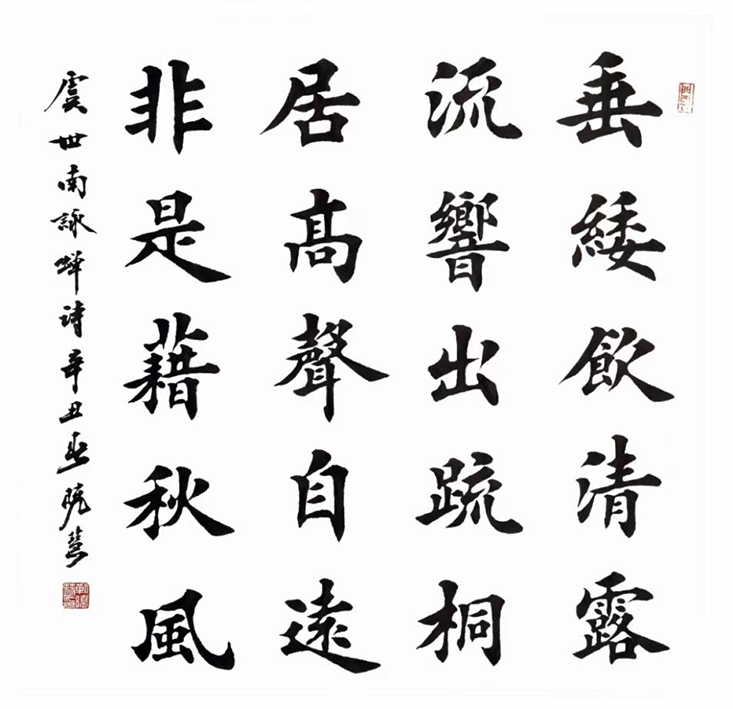 垂緌飲清露
流響出疏桐
居高聲自遠
非是藉秋風
虞世南詠蟬詩辛丑